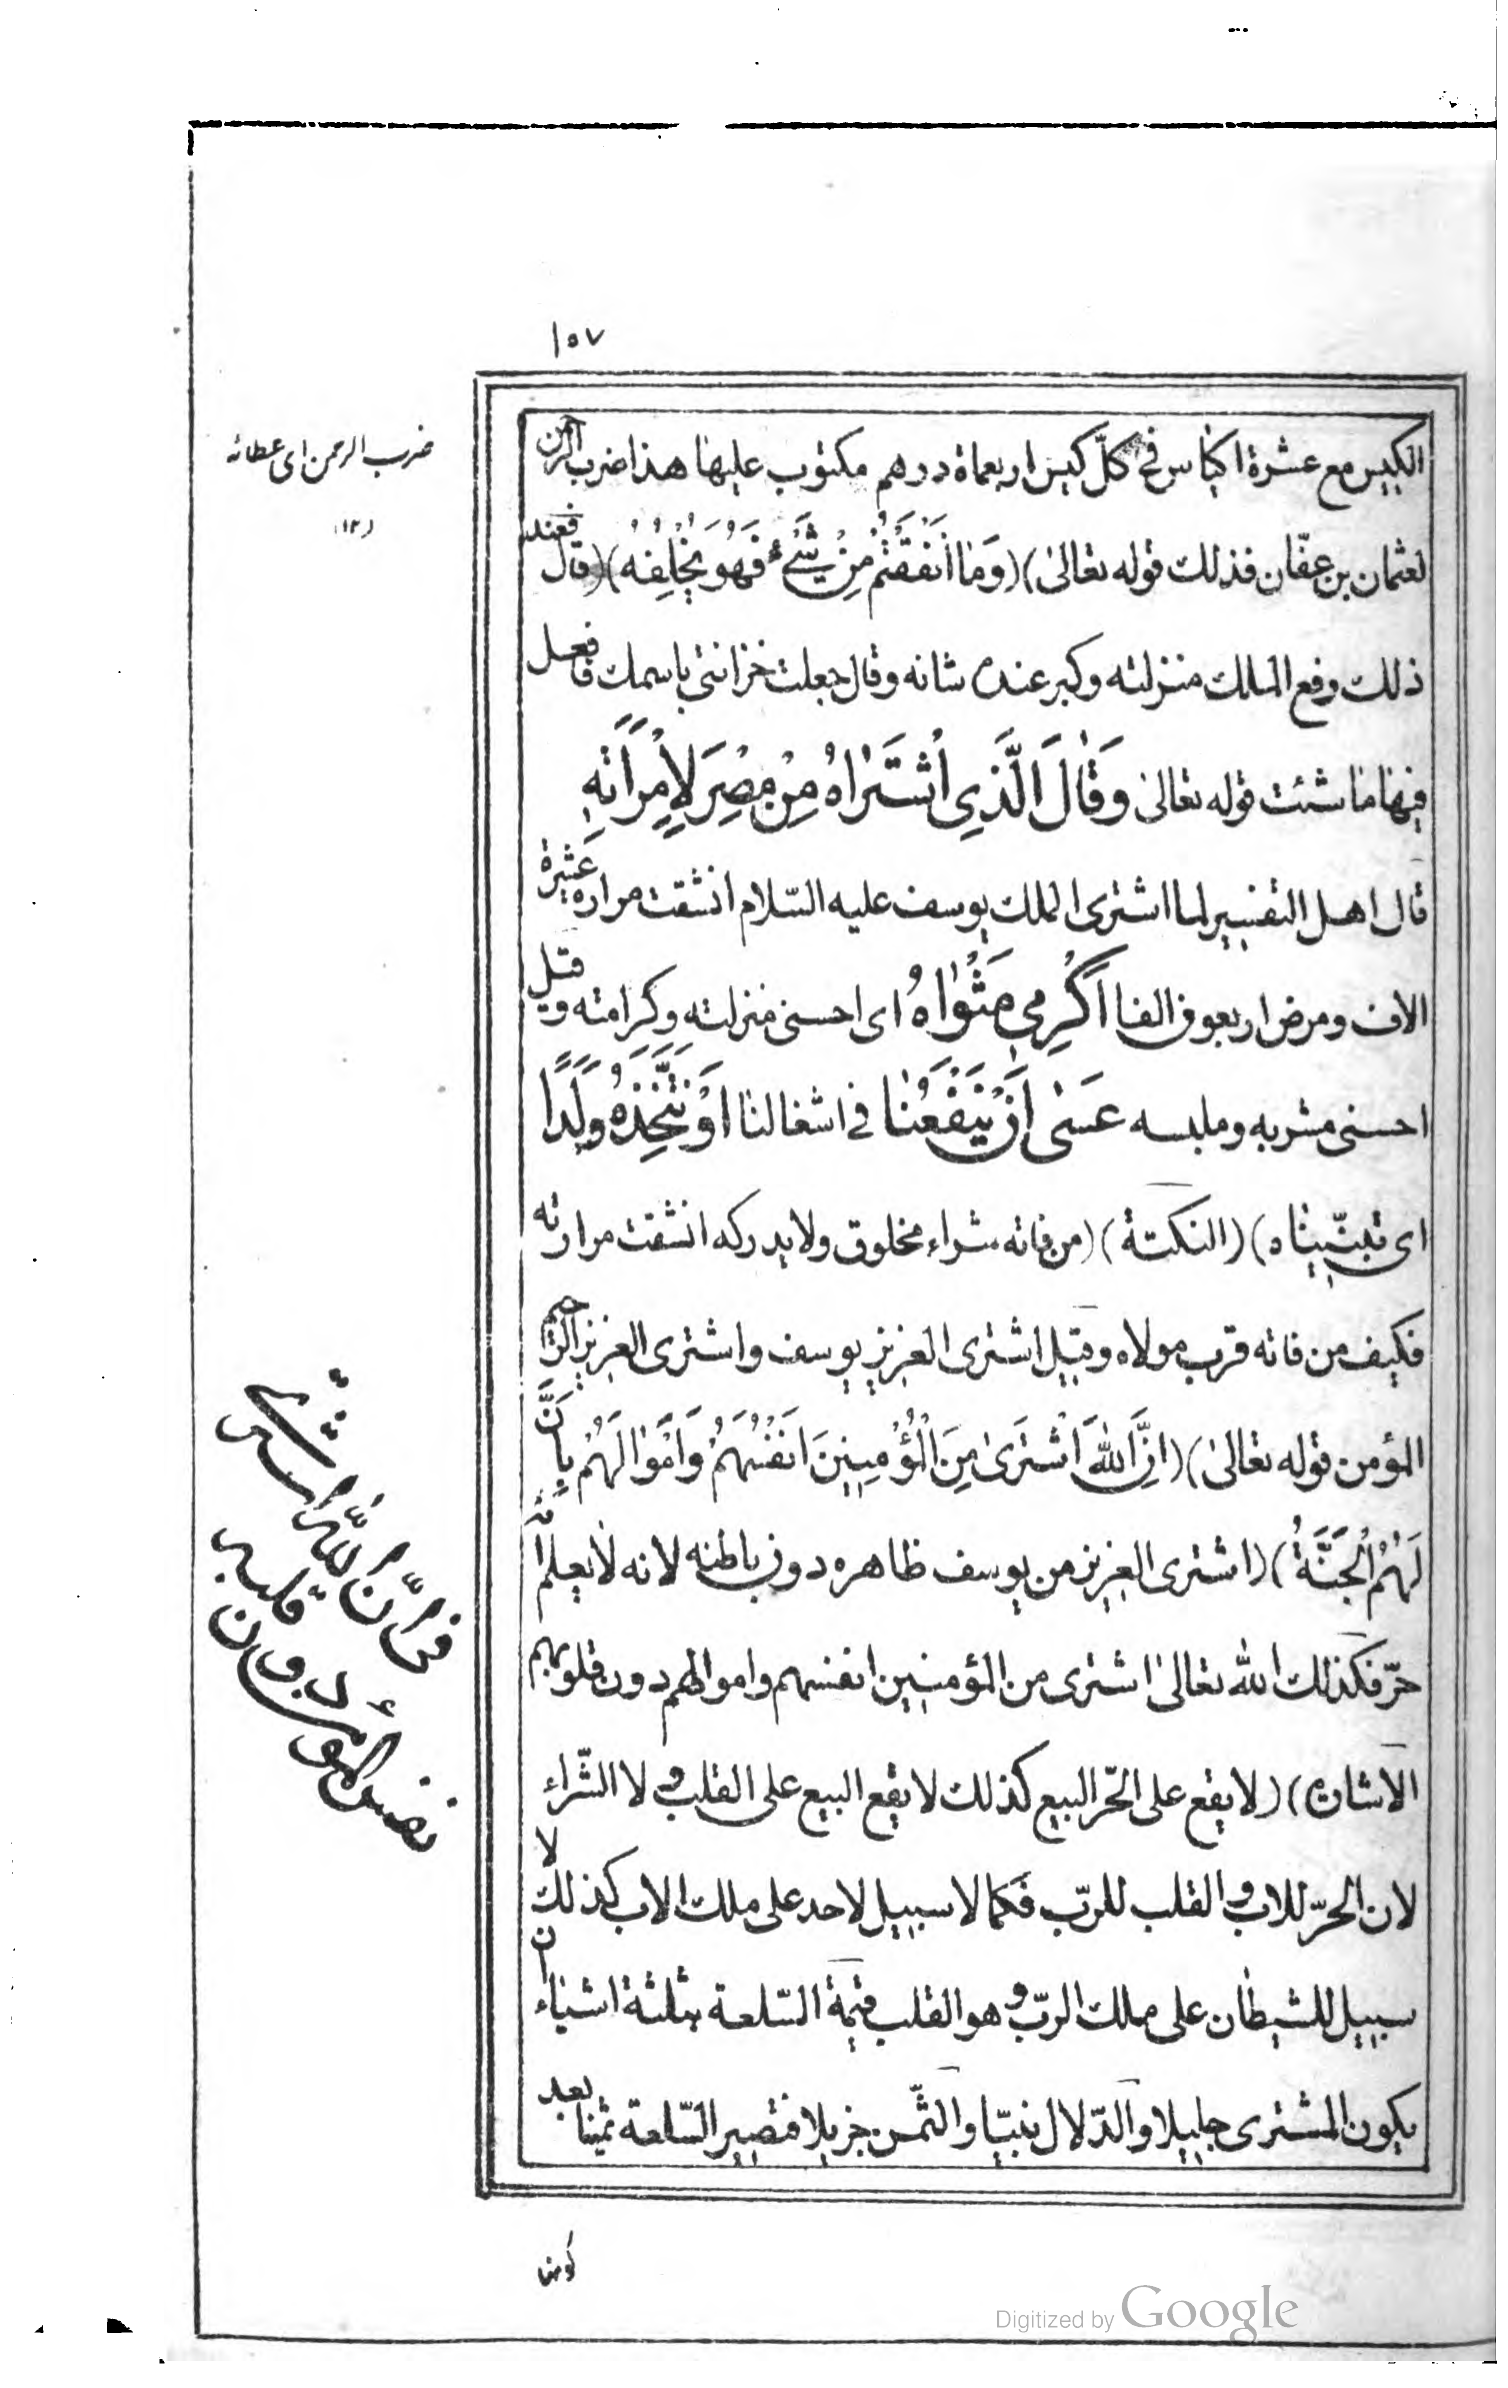 ١٥٧
الكيس مع عشرة اكياس في كلّ كيس اربعماة درهم مكتوب عليها هذا ضرب الرحمن
لعثمان بن عفّان فذلك قوله تعالىٰ)(وَمٰا اَنْفَقْتُمْ مِنْ شَيْءٍ فَهُوَ يُخْلِفُهُ)(قال فعند
ذلك رفع الملك منزلته وكبر عنده شانه وقال جعلت خزانتى باسمك فافعل
فيها ما شئت قوله تعالىٰ وَقٰالَ الَّذِي اشْتَرٰاهُ مِنْ مِصْرَ لِاِمْرَاَتِهِ
قال اهل التفسير لما اشترى الملك يوسف عليه السّلام انشقت مرارة عشرة
الاف ومرض اربعون الفا اَكْرِمِي مَثْوٰاهُ اى احسنى منزلته وكرامته وقيل
احسنى مشربه وملبسه عَسٰى اَنْ يَنْفَعَنٰا في اشغالنا اَوْ نَتَّخِذَهُ وَلَدًا
اى تبنّيناه)(النكتة)(من فاته شراء مخلوق ولا يدركه انشقت مرارته
فكيف من فاته قرب مولاه وقيل اشترى العزيز يوسف واشترى العزيز الرّحيم
المؤمن قوله تعالىٰ)(اِنَّ اللهَ اشْتَرَىٰ مِنَ الْمُؤْمِنِينَ اَنْفُسَهُمْ وَاَمْوٰالَهُمْ بِاَنَّ
لَهُمُ الْجَنَّةَ)(اشترى العزيز من يوسف ظاهره دون باطنه لانه لا يعلم انّه
حرّ فكذلك الله تعالىٰ اشترى من المؤمنين انفسهم واموالهم دون قلوبهم
الاشارة)(لا يقع على الحّر البيع كذلك لا يقع البيع على القلب ولا الشّراء
لان الحرّ للاب والقلب للرّب فكما لا سبيل لاحد على ملك الاب كذلك لا
سبيل للشيطان على ملك الرّب وهو القلب قيمة السّلعة بثلثة اشياء ان
يكون المشترى جليلا والدّلال نبيّا والثّمن جزيلا فتصير السّلعة ثمينا بعد
ضرب الرحمن اى عطائه
(١٢)
فى انّ الله اشترى
نفس المؤمن دون قلبه
Digitized by Google